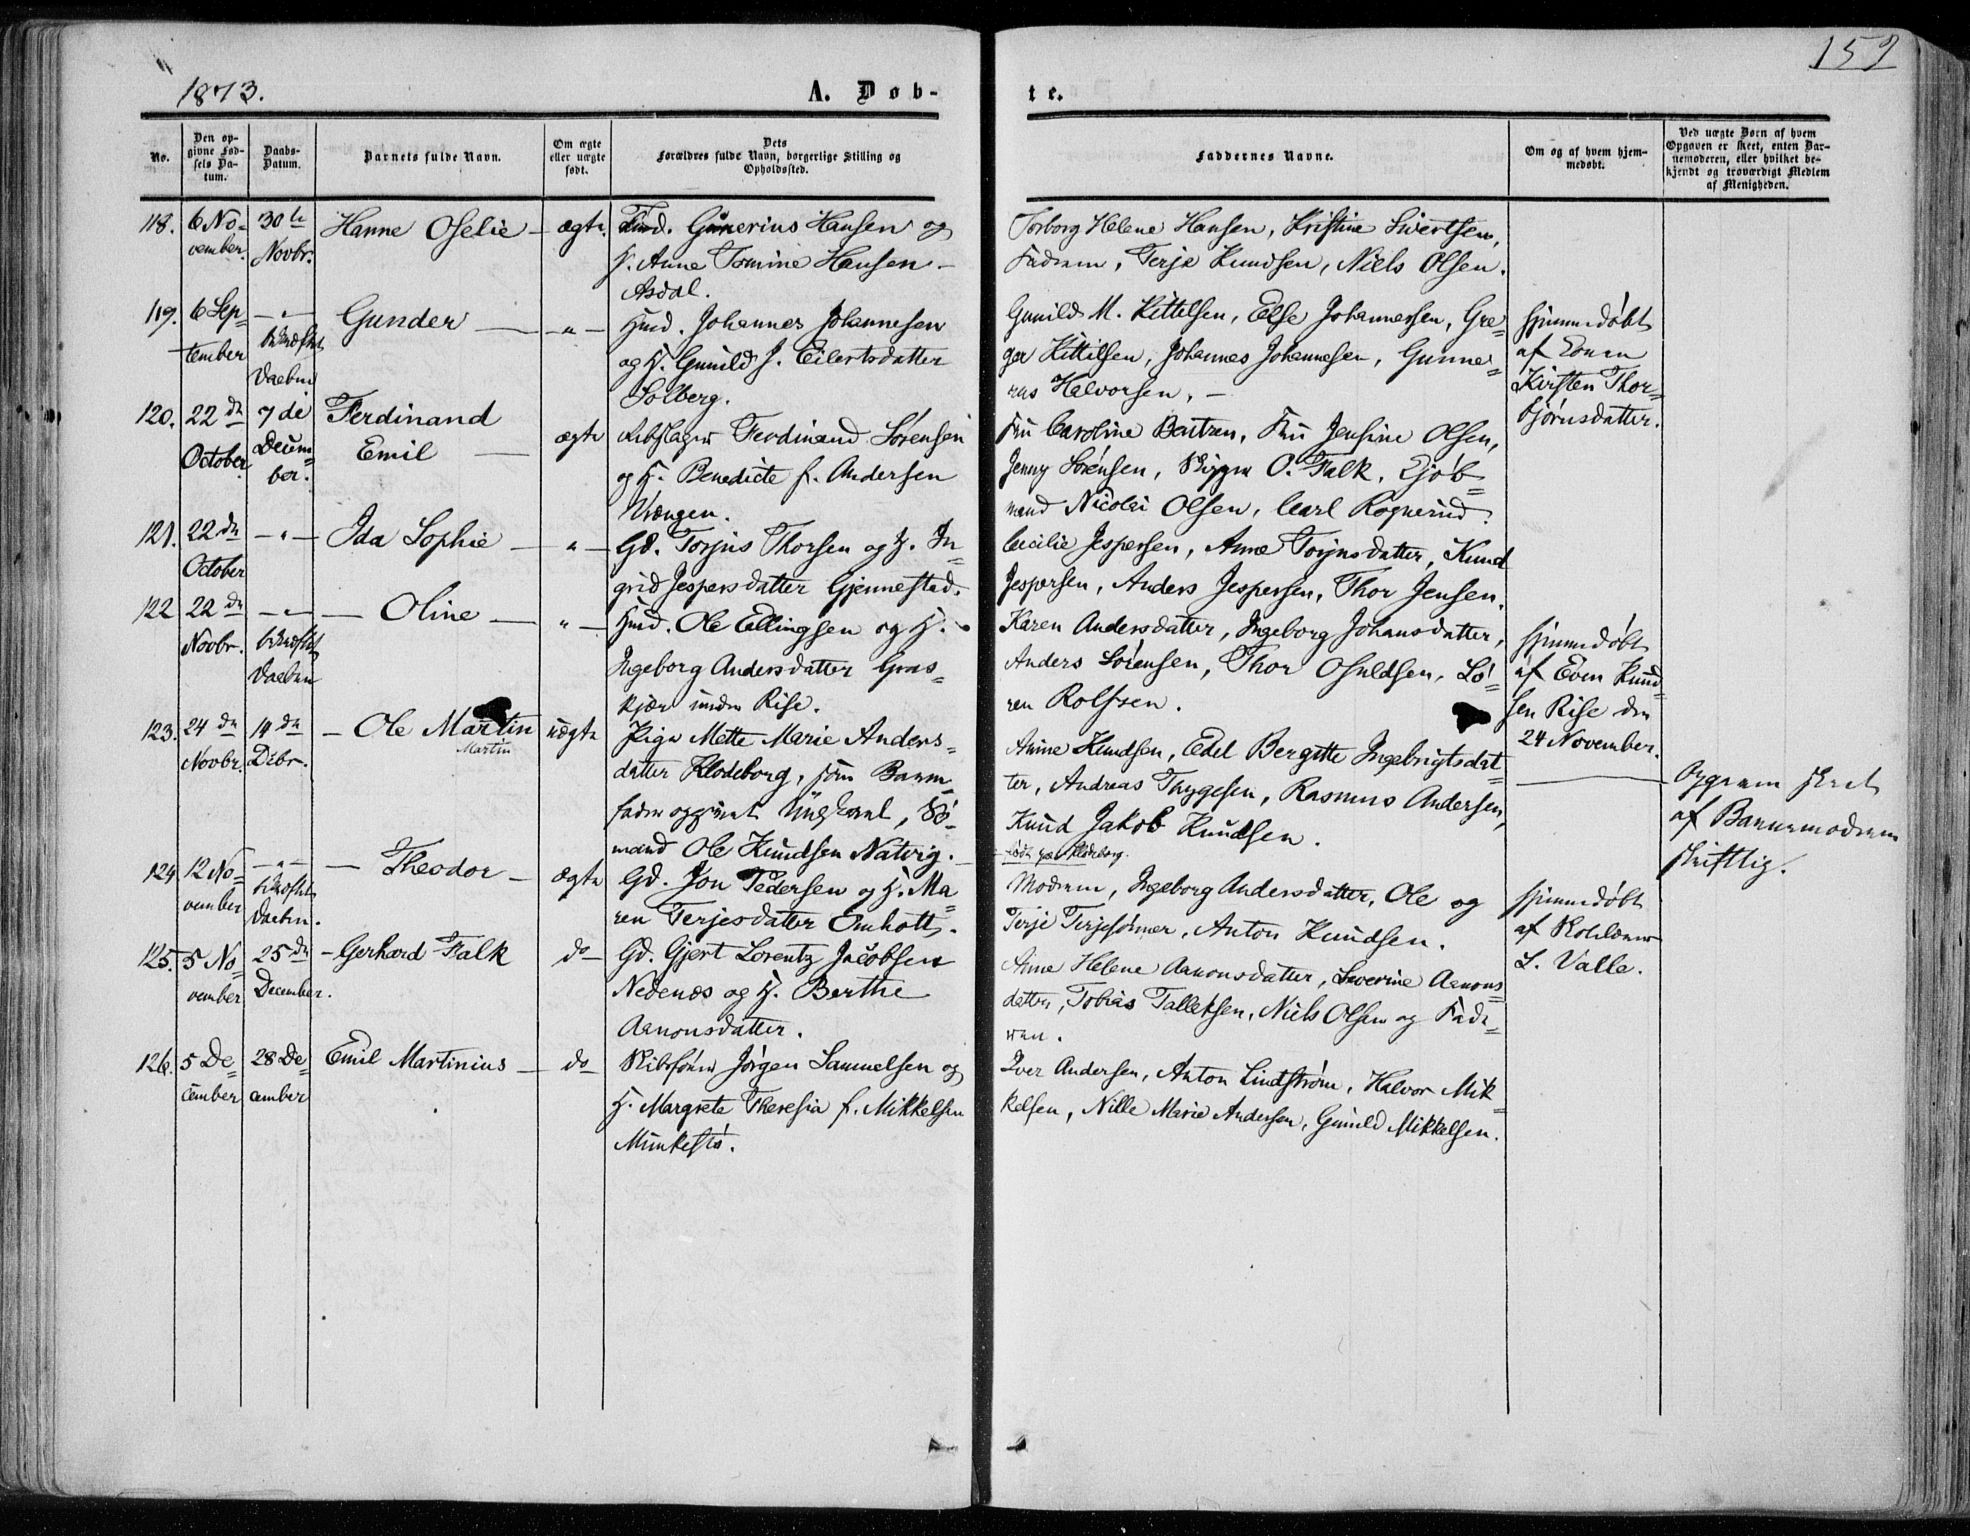 1873.
A. Døb-
te.
159
No.
Den op-
givne Fød-
sels Da-
tum.
Daabs-
Datum.
Barnets fulde Navn.
Om ægte
eller uægte
født.
Dets
Forældres fulde Navn, borgerlige Stilling og
Opholdssted.
Faddernes Navne.
Om og af hvem hjem-
medøbt.
Ved uægte Børn af hvem
Opgaven er skeet, enten Bar-
nemoderen, eller hvilket be-
kjendt og troværdigt Medlem
af Menigheden.
118. 6 No- 30te Hanne Oselie - ægte. Gunerius Hansen og
vember. Novbr. H. Anne Tomine Hansen -
Asdal.
Torborg Helene Hansen, Kristine Sivertsen,
Faderen, Terje Knudsen, Niels Olsen.
119. 6 Sep- - " - Gunder - " - Hmd. Johannes Johannesen
tember og H. Gunild J. Eilertsdatter
Solberg.
Gunild M. Kittelsen, Else Johannessen, Gre-
ger Kittilsen, Johannes Johannesen, Gunne-
rus Halvorsen, -
Hjemmedøbt
af Konen
Kirsten Thor-
bjørnsdatter.
120. 22de 7de Ferdinand
October Decem- Emil - ægte Rebslager Ferdinand Sørensen
ber. og H. Benedicte f. Andersen
Vrængen.
Fru Caroline Bentzen, Fru Jensine Olsen,
Jenny Sørensen, Skipper O. Falk, Kjøb-
mand Nicolai Olsen, Carl Rognerud.
121. 22de - " - Ida Sophie - " - Gd. Torjus Thorsen og H. In-
October grid Jespersdatter Gjennestad.
Cecilie Jespersen, Anne Torjusdatter, Knud
Jespersen, Anders Jespersen, Thor Jensen.
122 22de - " - Oline - " - Hmd. Ole Ellingsen og H.
Novbr. Ingeborg Andersdatter Græs-
kjær under Rise.
Karen Andersdatter, Ingeborg Johansdatter,
Anders Sørensen, Thor Osuldsen, Sø-
ren Rolfsen.
Hjemmedøbt
af Even Knud-
sen Rise den
24 November.
123. 24de 14de - Ole Martin uægte Pige Mette Marie Anders-
Martin
Novbr. Debr. datter Klodeborg, som Barne-
fader opgivet Ungkarl, Sø-
mand Ole Knudsen Natvig.
Anne Knudsen, Edel Bergitte Ingebrigtsdat-
ter, Andreas Thygesen, Rasmus Andersen,
Knud Jakob Knudsen.
født paa Klodeborg.
Opgaven skeet
af Barnemoderen
skriftlig.
124 12 No- - " - - Theodor - ægte Gd. Jon Pedersen og H. Ma-
vember ren Terjesdatter Omholt.
Moderen, Ingeborg Andersdatter, Ole og
Terje Terjesønner, Anton Knudsen.
Hjemmedøbt
af Skolelærer
S. Valle.
125. 5 No- 25de - Gerhard Falk do - Gd. Gjert Lorentz Jacobsen
vember December. Nedenæs og H. Berthe
Aanonsdatter.
Anne Helene Aanonsdatter, Severine Aanons-
datter, Tobias Tallaksen, Niels Olsen og Fade-
ren.
126. 5 De- 28 De- Emil Martinius - do Skibsfører Jørgen Samuelsen og
cember cember H. Margrete Theresia f. Mikkelsen
Munkestø.
Iver Andersen, Anton Lindstrøm, Halvor Mik-
kelsen, Nille Marie Andersen, Gunild Mikkelsen.